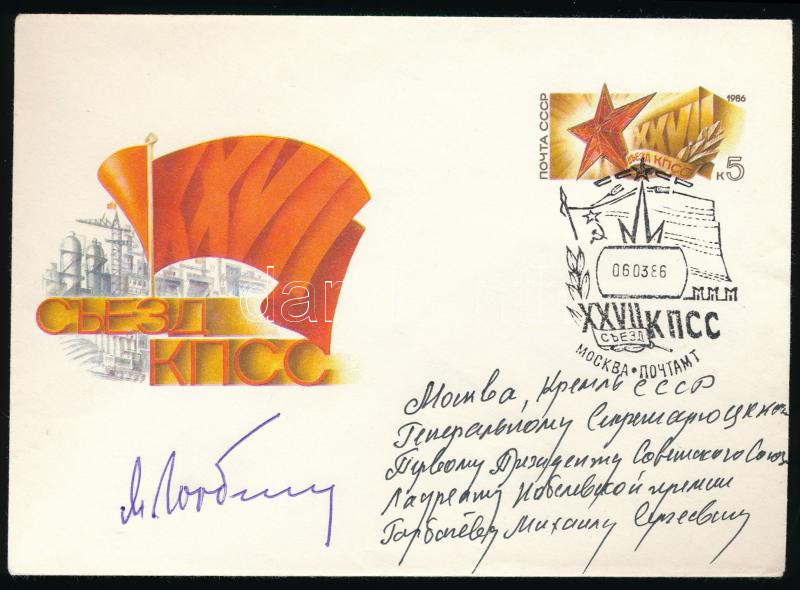 XXVII
СЪЕЗД
КПСС
ПОЧТА СССР
1986
XXVII
СЪЕЗД КПСС
к5
06.03.86
XXVII КПСС
СЪЕЗД
МОСКВА • ПОЧТАМТ
Москва, Кремль СССР
Генеральному Секретарю ЦК КПСС
Первому Президенту Советского Союза
Лауреату Нобелевской премии
Горбачёву Михаилу Сергеевичу